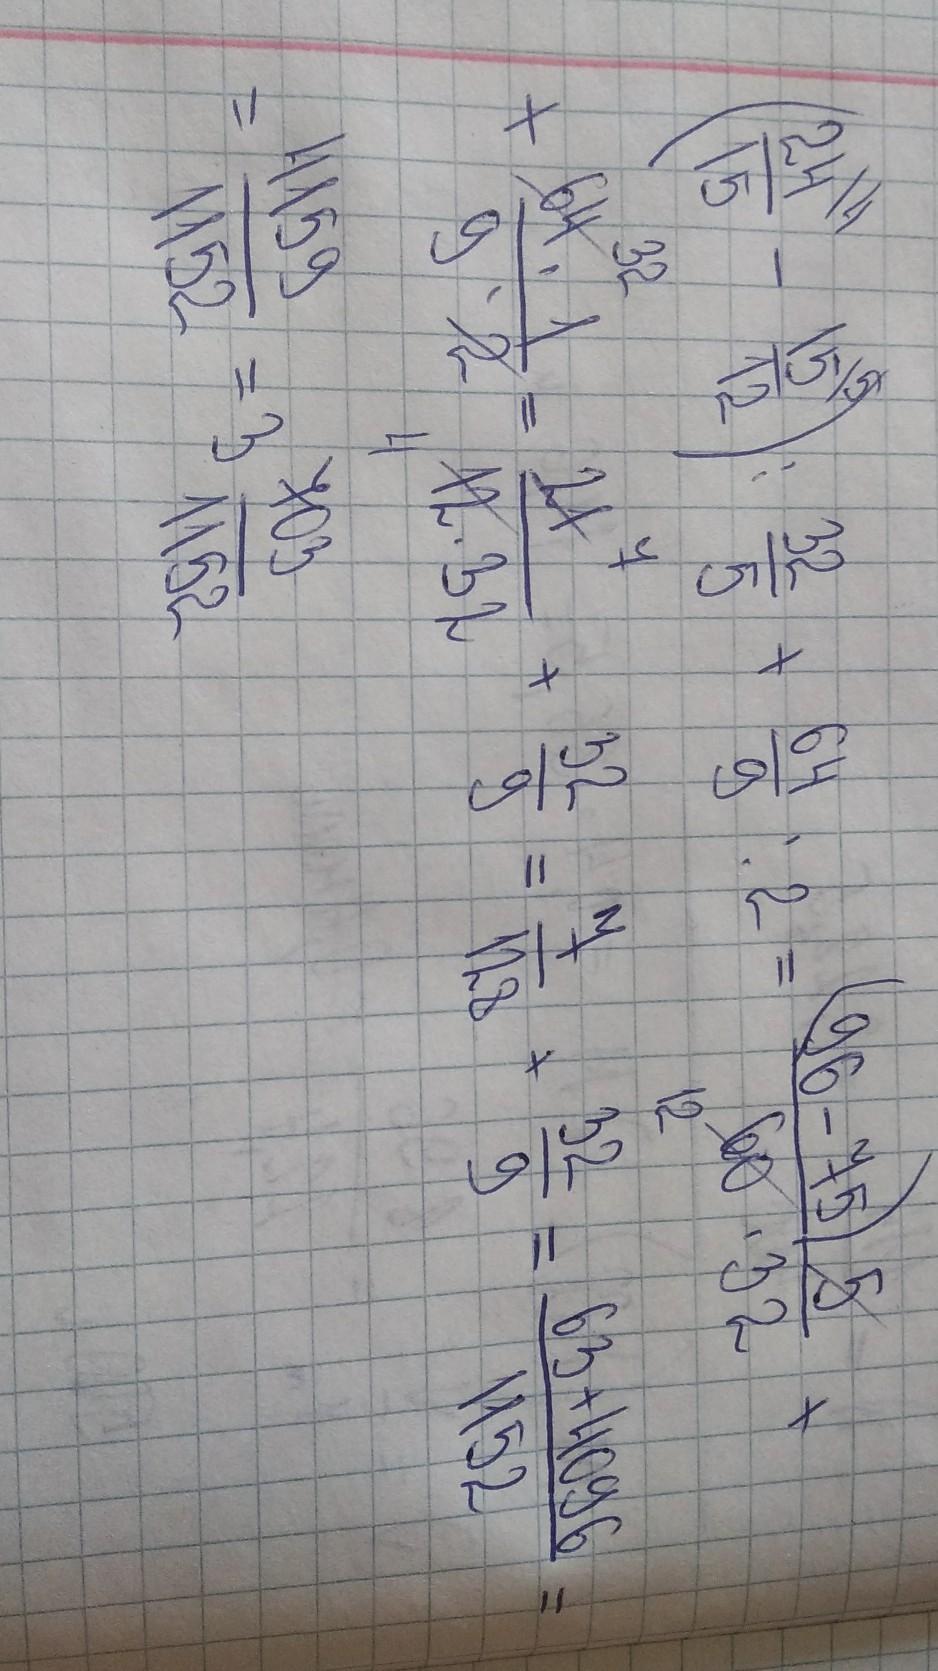 (24/15 \4 - 15/12 \5) : 32/5 + 64/9 : 2 = (96 - 75) 5 / 60 12 · 32 +
+ 64 32 · 1 / 9 · 2 = 21 7 / 12 4 · 32 + 32/9 = 7/128 + 32/9 = 63 + 4096 / 1152 =
= 4159/1152 = 3 703/1152